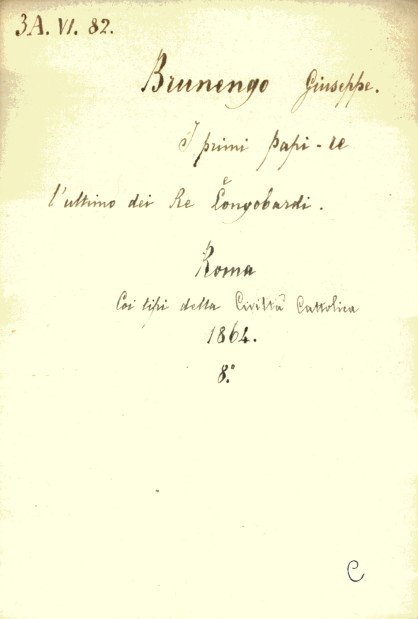 3A. VI. 82.
Brunengo Giuseppe.
I primi Papi-re
e
l'ultimo dei Re Longobardi.
Roma
Coi tipi della Civiltà Cattolica
1864.
8.°
C